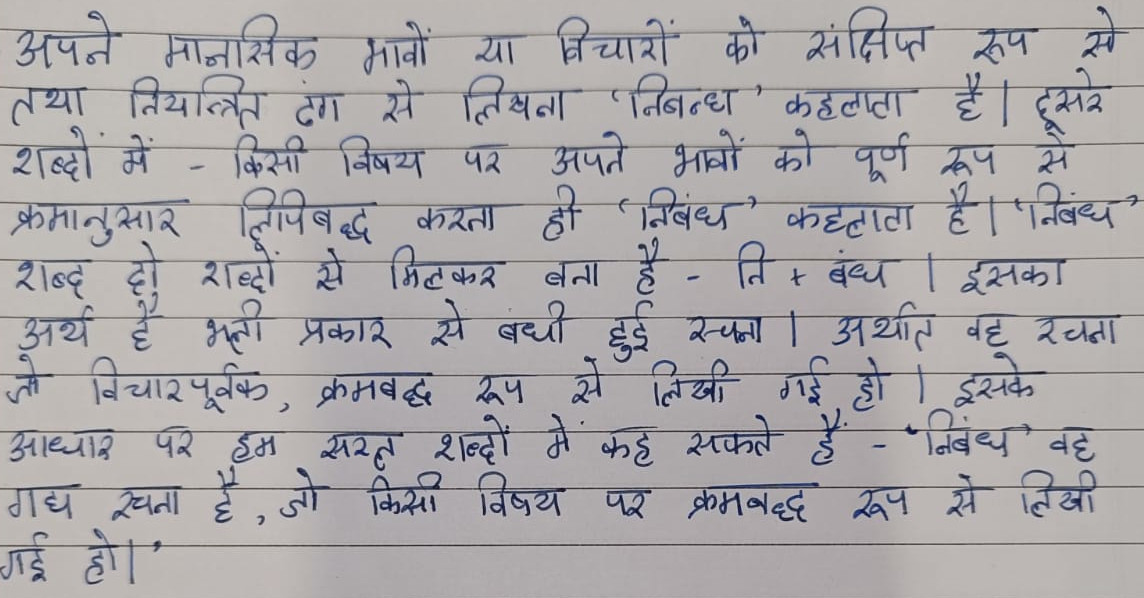 अपने मानसिक भावों या विचारों को संक्षिप्त रूप से
तथा नियन्त्रित ढंग से लिखना 'निबन्ध' कहलाता है। दूसरे
शब्दों में - किसी विषय पर अपने भावों को पूर्ण रूप से
क्रमानुसार लिपिबद्ध करना ही 'निबंध' कहलाता है। 'निबंध'
शब्द दो शब्दों से मिलकर बना है - नि + बंध । इसका
अर्थ है भली प्रकार से बंधी हुई रचना । अर्थात वह रचना
जो विचारपूर्वक, क्रमबद्ध रूप से लिखी गई हो । इसके
आधार पर हम सरल शब्दों में कह सकते हैं - 'निबंध' वह
गद्य रचना है, जो किसी विषय पर क्रमबद्ध रूप से लिखी
गई हो।'